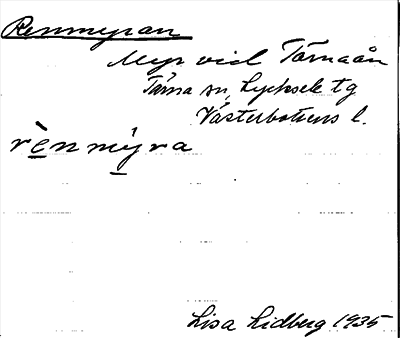 Renmyran
Myr vid Tärnaån
Tärna sn, Lycksele tg
Västerbottens l.
rènmy̌ra
Lisa Lidberg 1935